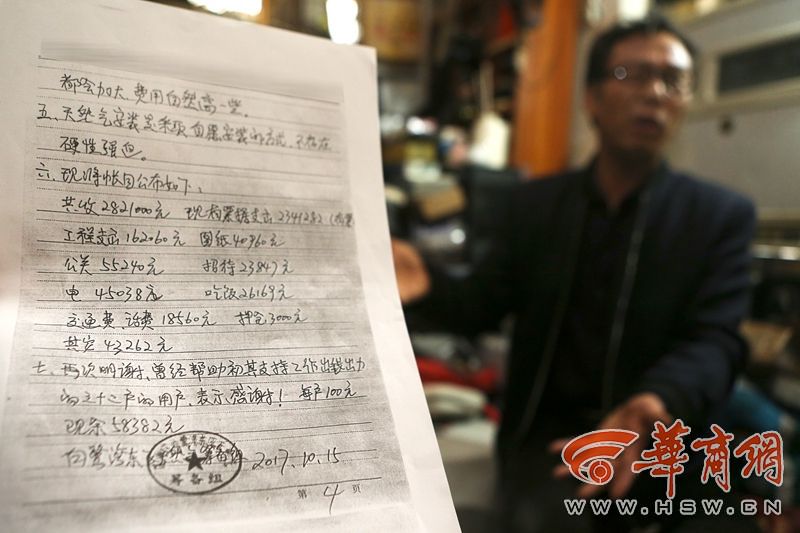 都会加大、费用自然高一些。
五、天然气安装是采取自愿安装的方式、不存在
硬性强迫。
六、现将帐目公布如下、
共收2821000元 现有票据支出2341282
工程支出162060元 图纸40960元
公关55240元 招待23847元
电 45038元 吃饭26169元
交通费、话费18560元 押金3000元
其它43262元
七、再次明谢、曾经帮助初期支持工作出钱出力
的三十二户的用户、表示感谢! 每户100元
现余58382元
筹备组 2017.10.15
第 4 页
华商网
WWW.HSW.CN